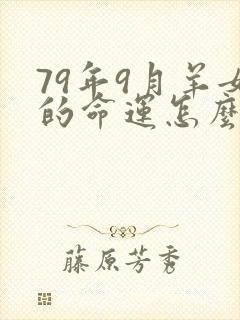 79年9月羊女
的命运怎麼
藤原芳秀